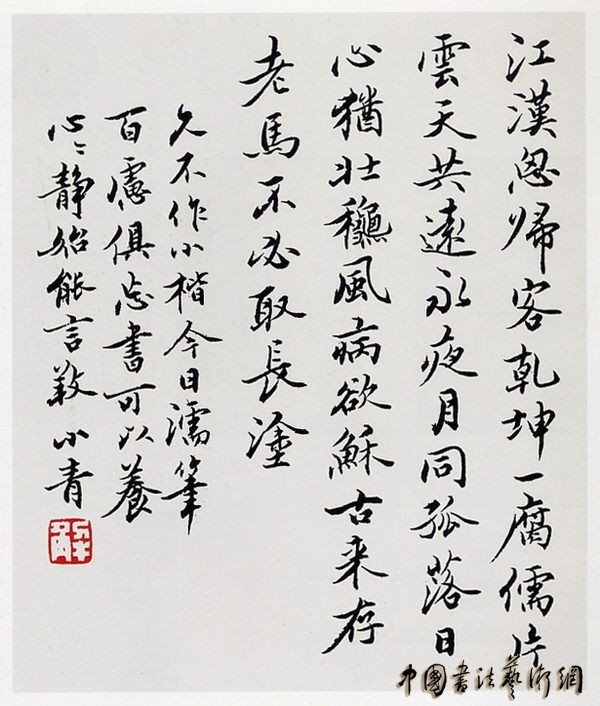 江漢思帰客乾坤一腐儒片
雲天共遠永夜月同孤落日
心猶壯穐風病欲穌古来存
老馬不必取長塗
久不作小楷今日濡筆
百慮俱忘書可以養
心〻静始能言小青
中國書法藝術網